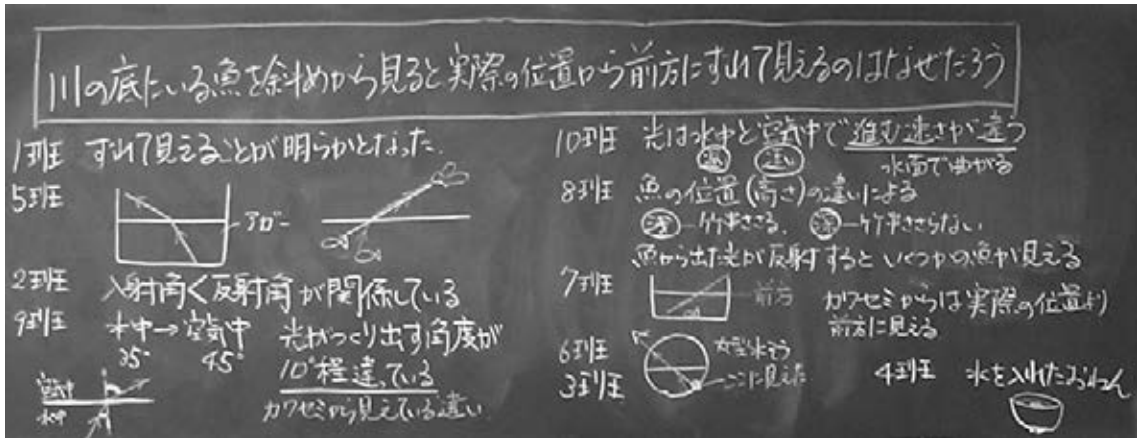 川の底にいる魚を斜めから見ると実際の位置から前方にずれて見えるのはなぜだろう
1班 ずれて見えることが明らかとなった.
5班
2班 入射角く反射角が関係している
9班 水中→空気中 光がつくり出す角度が
35° 45° 10°程違っている
カワセミから見えている違い
空気中
水中
10班 光は水中と空気中で進む速さが違う
速い
水面で曲がる
8班 魚の位置(高さ)の違いによる
浅 竹串ささる. 深 竹串ささらない
魚から出た光が反射するといくつかの魚が見える
7班 前方 カワセミからは実際の位置より
前方に見える
6班 水そう
3班 ここに見えた
4班 水を入れたおわん